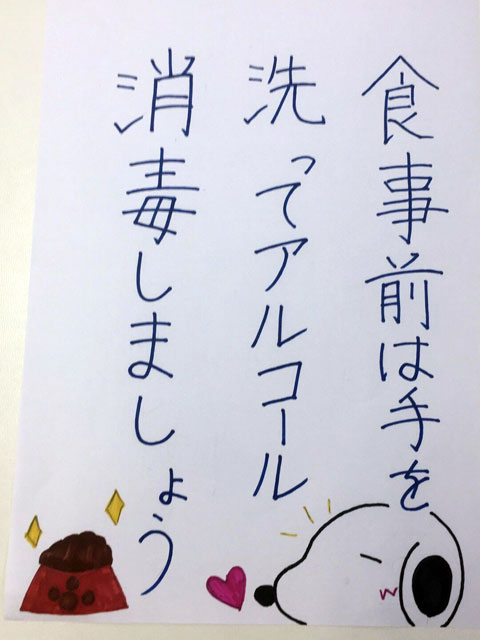 食事前は手を
洗ってアルコール
消毒しましょう